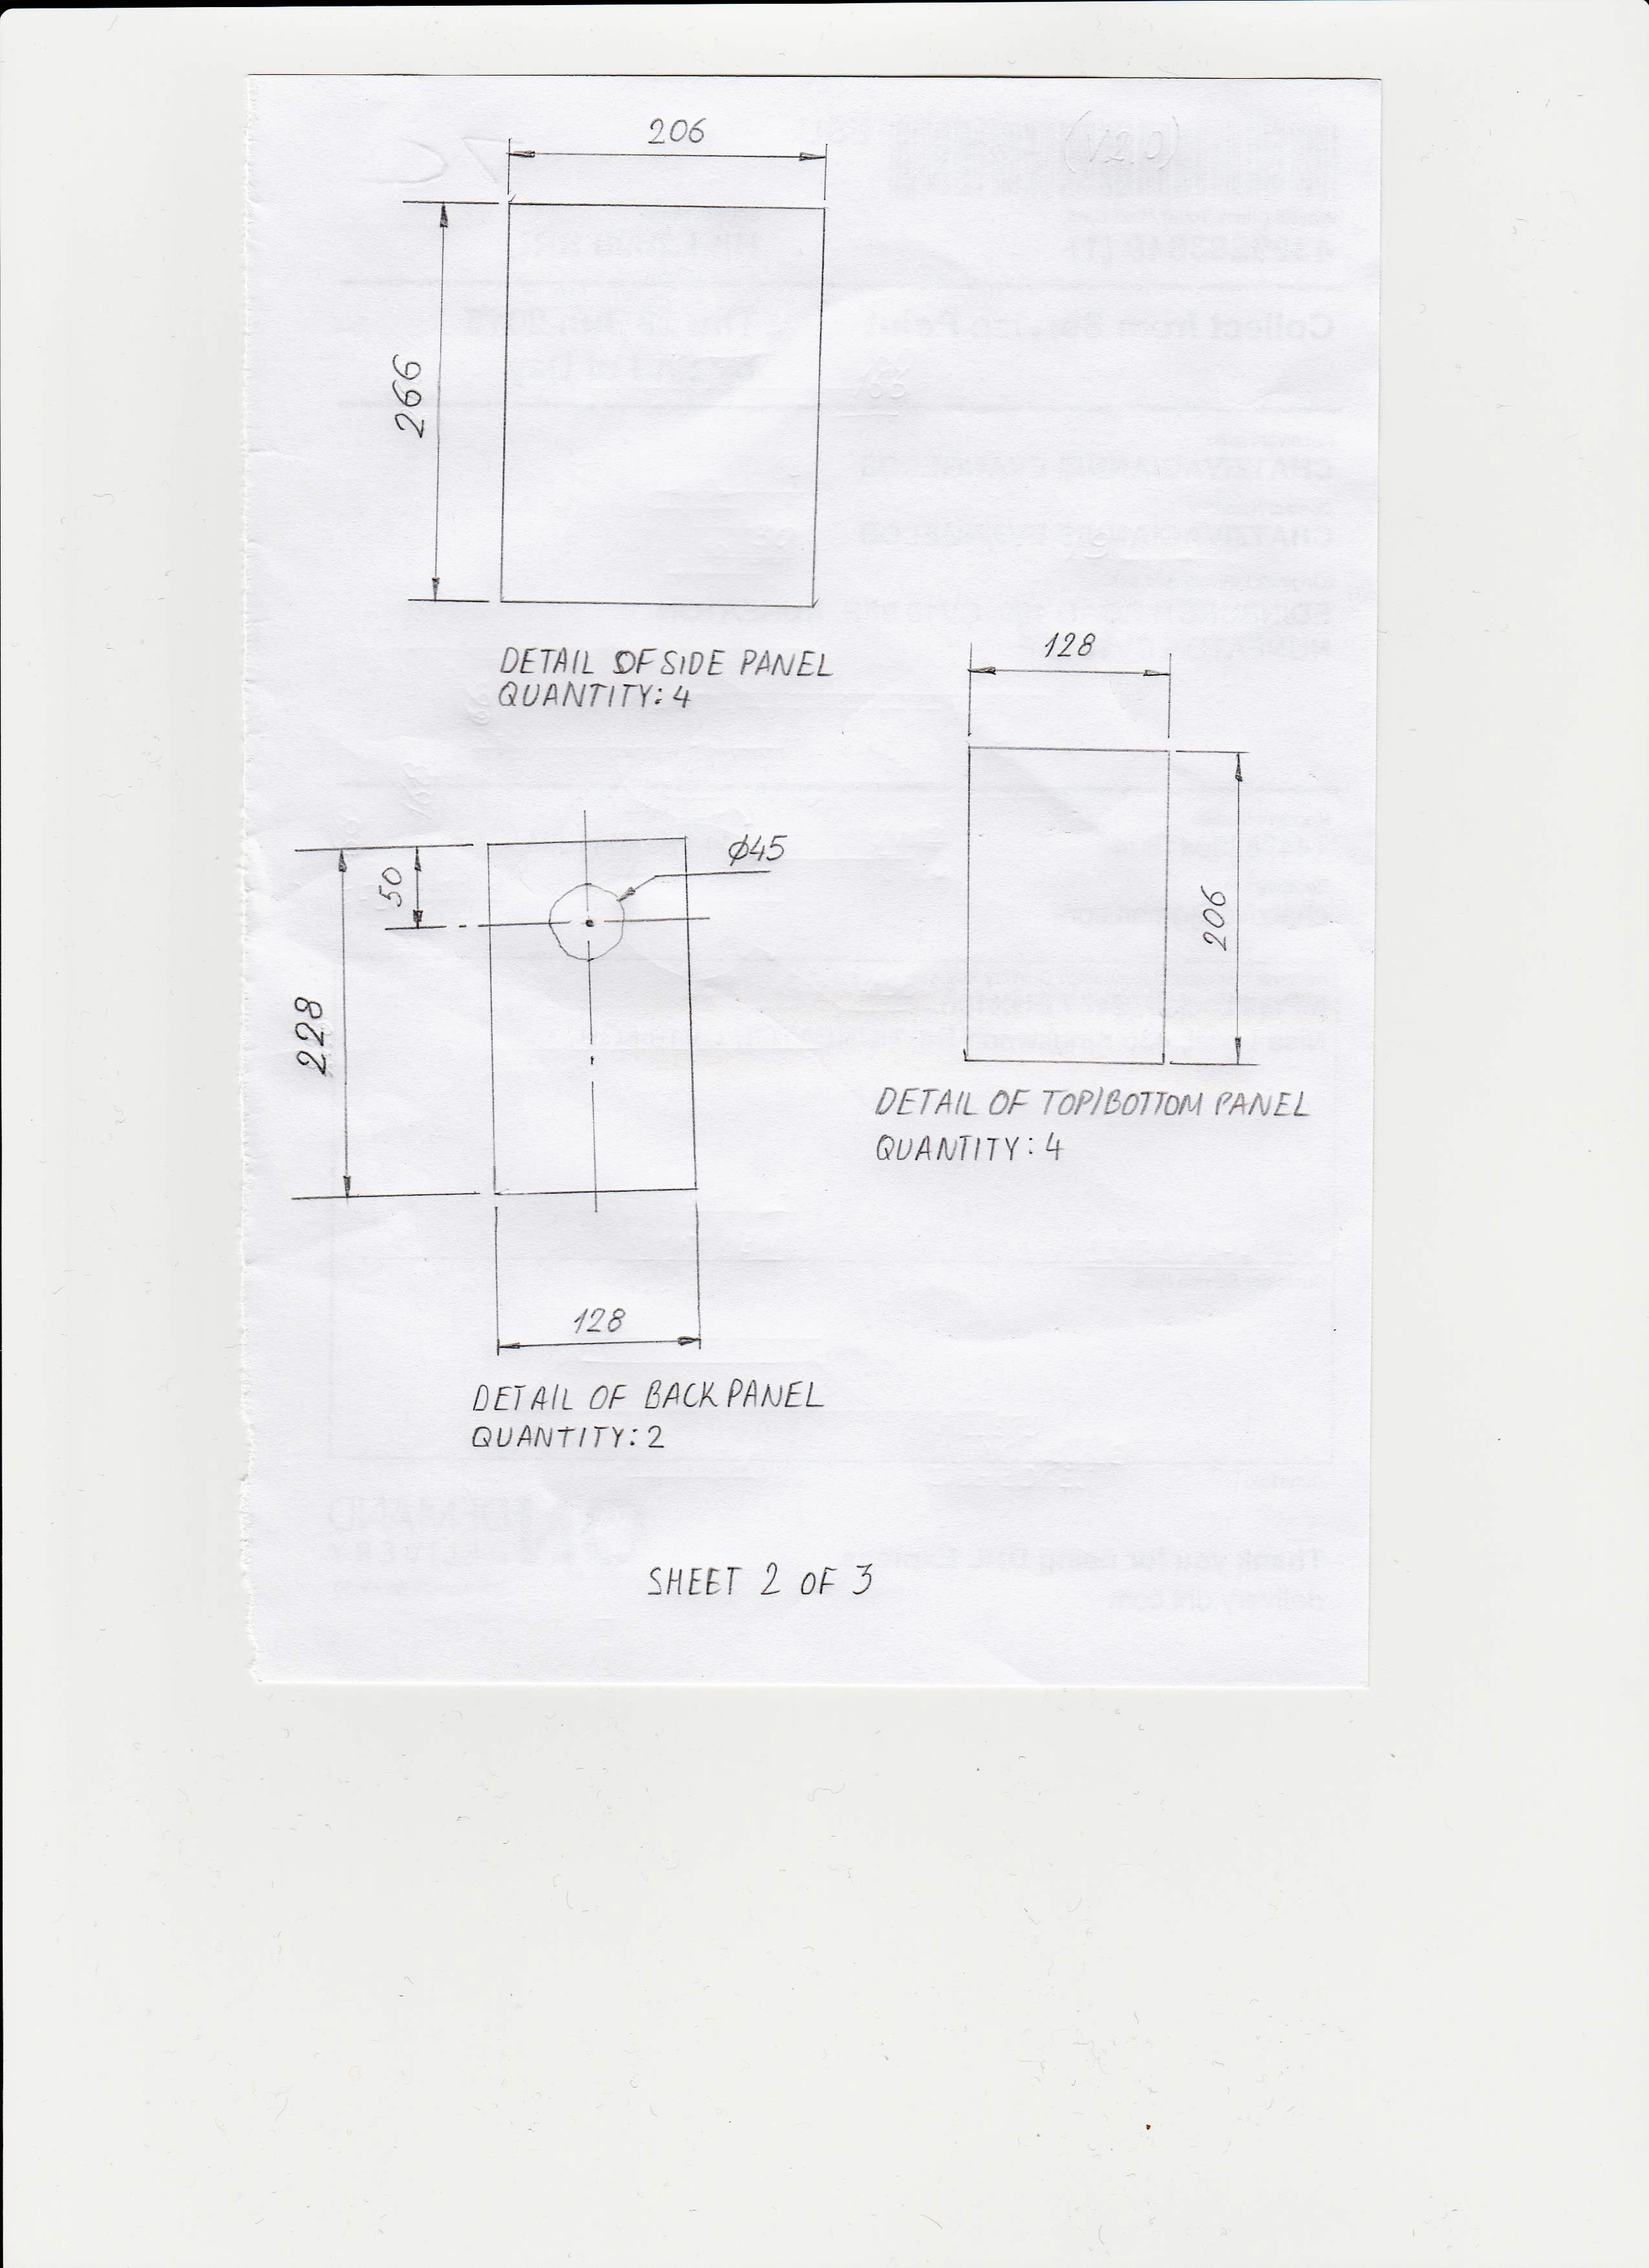 206
266
DETAIL OF SIDE PANEL
QUANTITY: 4
128
206
DETAIL OF TOP/BOTTOM PANEL
QUANTITY: 4
ϕ45
50
228
128
DETAIL OF BACK PANEL
QUANTITY: 2
SHEET 2 OF 3